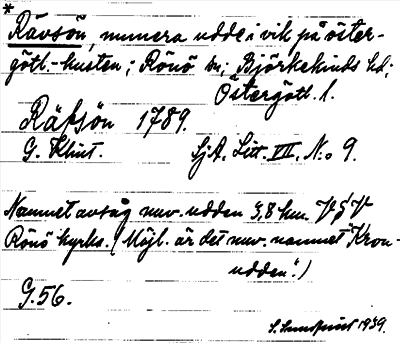 *
Rävsön, numera udde i vik på öster-
götl.-kusten; Rönö sn; Björkekinds hd;
Östergötl. l.
Räfsön 1789.
G. Klint. Sj.A. Litt. VII. N:o 9.
Namnet avsåg nuv. udden 3,8 km. VSV
Rönö kyrka. (Möjl. är det nuv. namnet "Kron-
udden".)
G.56.
S. Lundqvist 1939.